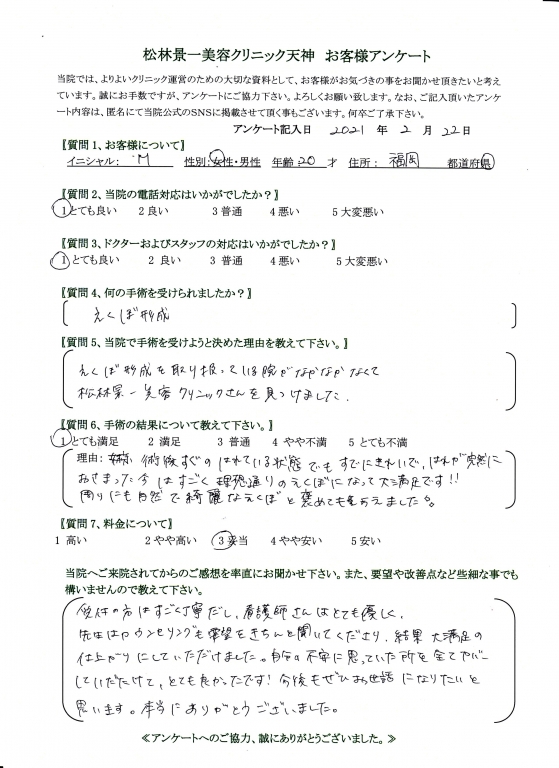 松林景一美容クリニック天神　お客様アンケート
当院では、よりよいクリニック運営のための大切な資料として、お客様がお気づきの事をお聞かせ頂きたいと考え
ています。誠にお手数ですが、アンケートにご協力下さい。よろしくお願い致します。なお、ご記入頂いたアンケ
ート内容は、匿名にて当院公式のSNSに掲載させて頂く事もございます。何卒ご了承下さい。
アンケート記入日　2021 年 2 月 22日
〖質問 1、お客様について〗
イニシャル： M　性別：女性・男性　年齢 20 才　住所： 福岡　都道府県
〖質問 2、当院の電話対応はいかがでしたか？〗
1とても良い　2 良い　3 普通　4 悪い　5 大変悪い
〖質問 3、ドクターおよびスタッフの対応はいかがでしたか？〗
1 とても良い　2 良い　3 普通　4 悪い　5 大変悪い
〖質問 4、何の手術を受けられましたか？〗
えくぼ形成
〖質問 5、当院で手術を受けようと決めた理由を教えて下さい。〗
えくぼ形成を取り扱っている院がなかなかなくて
松林景一美容クリニックさんを見つけました.
〖質問 6、手術の結果について教えて下さい。〗
1とても満足　2 満足　3 普通　4 やや不満　5 とても不満
理由： 術後すぐのはれている状態でもすでにきれいで、はれが完全に
おさまった今はすごく理想通りのえくぼになって大満足です!!
周りにも自然で綺麗なえくぼと褒めてもらえました。
〖質問 7、料金について〗
1 高い　2 やや高い　3 妥当　4 やや安い　5 安い
当院へご来院されてからのご感想を率直にお聞かせ下さい。また、要望や改善点など些細な事でも
構いませんので教えて下さい。
受付の方はすごく丁寧だし、看護師さんはとても優しく、
先生はカウンセリングも要望をきちんと聞いてくださり、結果大満足の
仕上がりにしていただけました。自分の不安に思っていた所を全てカバー
していただけて、とても良かったです! 今後もぜひお世話になりたいと
思います。本当にありがとうございました。
≪アンケートへのご協力、誠にありがとうございました。≫